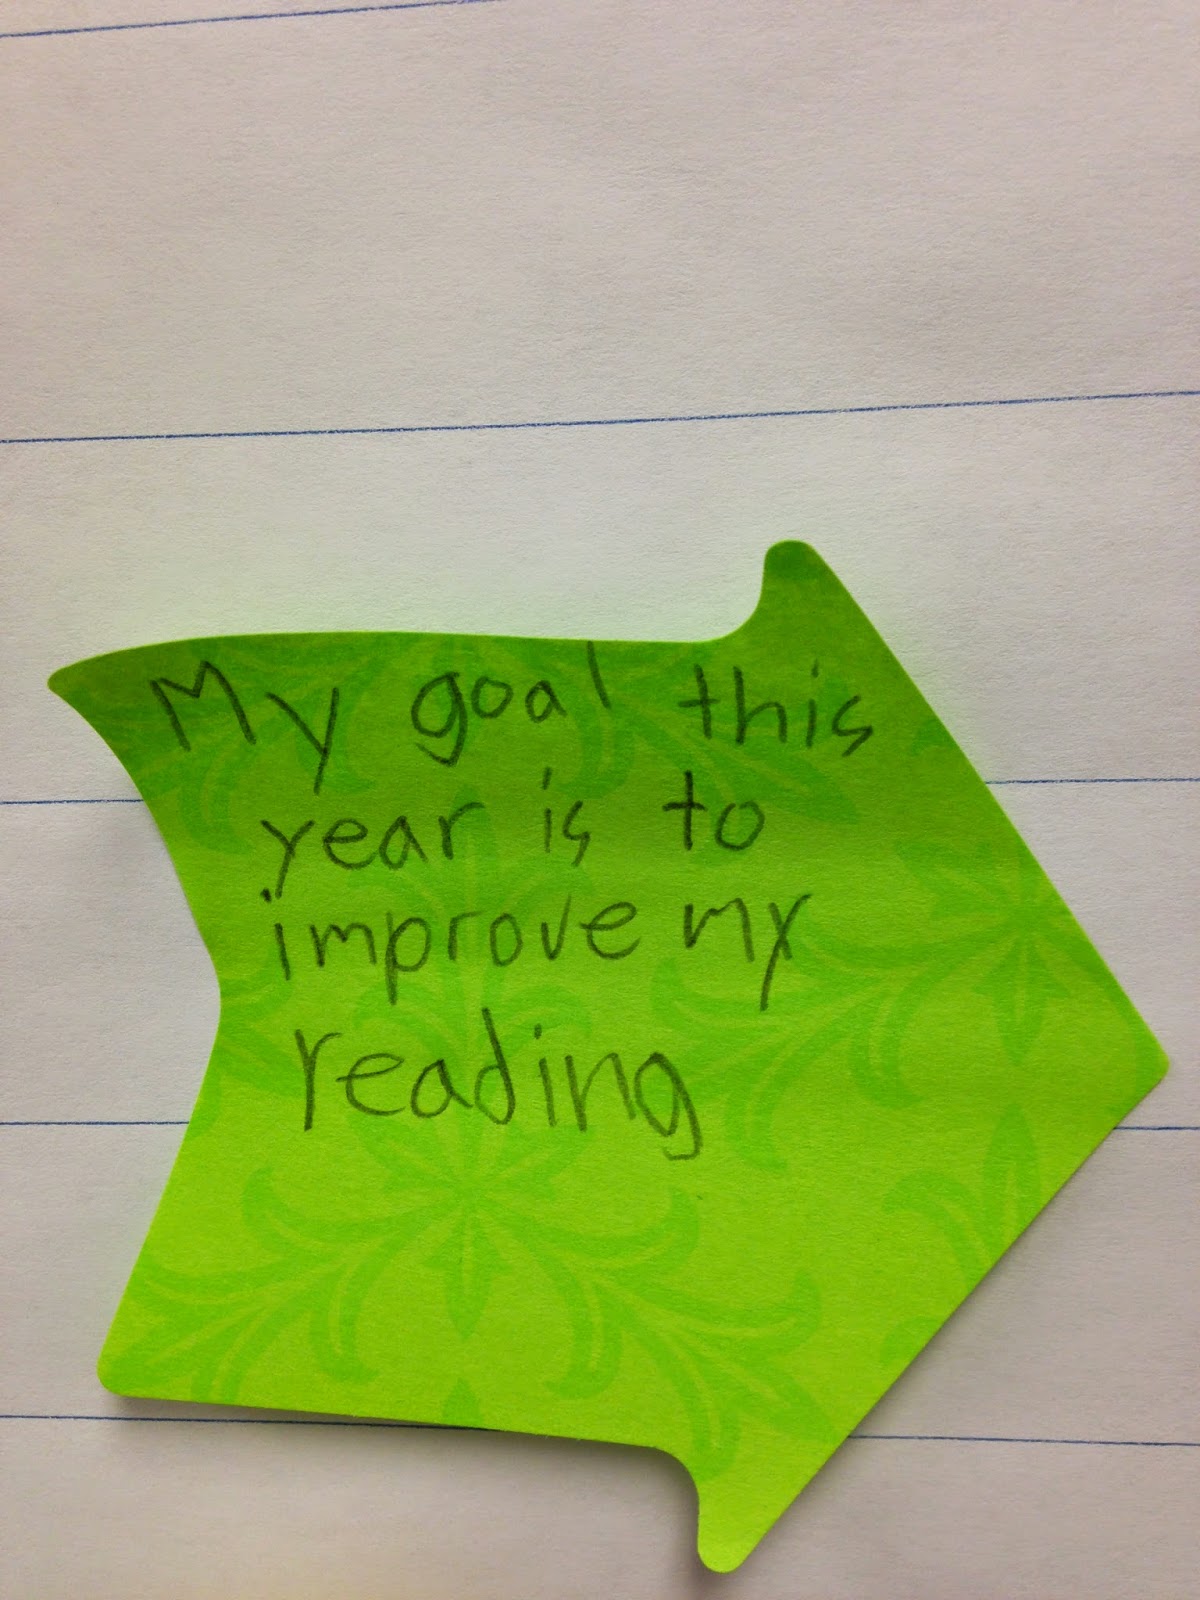 My goal this
year is to
improve my
reading